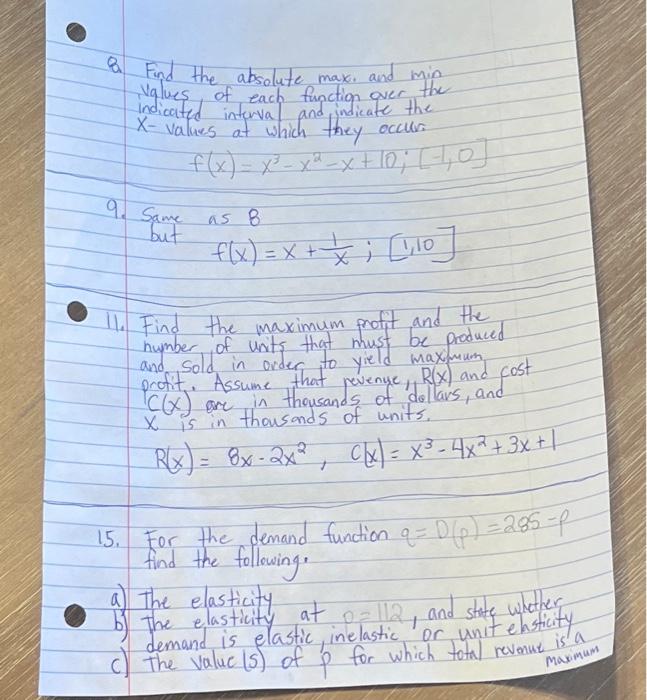 8. Find the absolute max. and min
values of each function over the
indicated interval and indicate the
X-values at which they occur.
f(x) = x³ - x² - x + 10; [-1, 0]
9. Same as 8
but
f(x) = x + 1/x ; [1,10]
11. Find the maximum profit and the
number of units that must be produced
and sold in order to yield maximum
profit. Assume that revenue, R(x) and cost
C(x) are in thousands of dollars, and
X is in thousands of units.
R(x) = 8x - 2x², C(x) = x³ - 4x² + 3x + 1
15. For the demand function q = D(p) = 285 - p
find the following.
a) The elasticity
b) The elasticity at p = 112, and state whether
demand is elastic, inelastic or unit elasticity
c) The value(s) of p for which total revenue is a
maximum